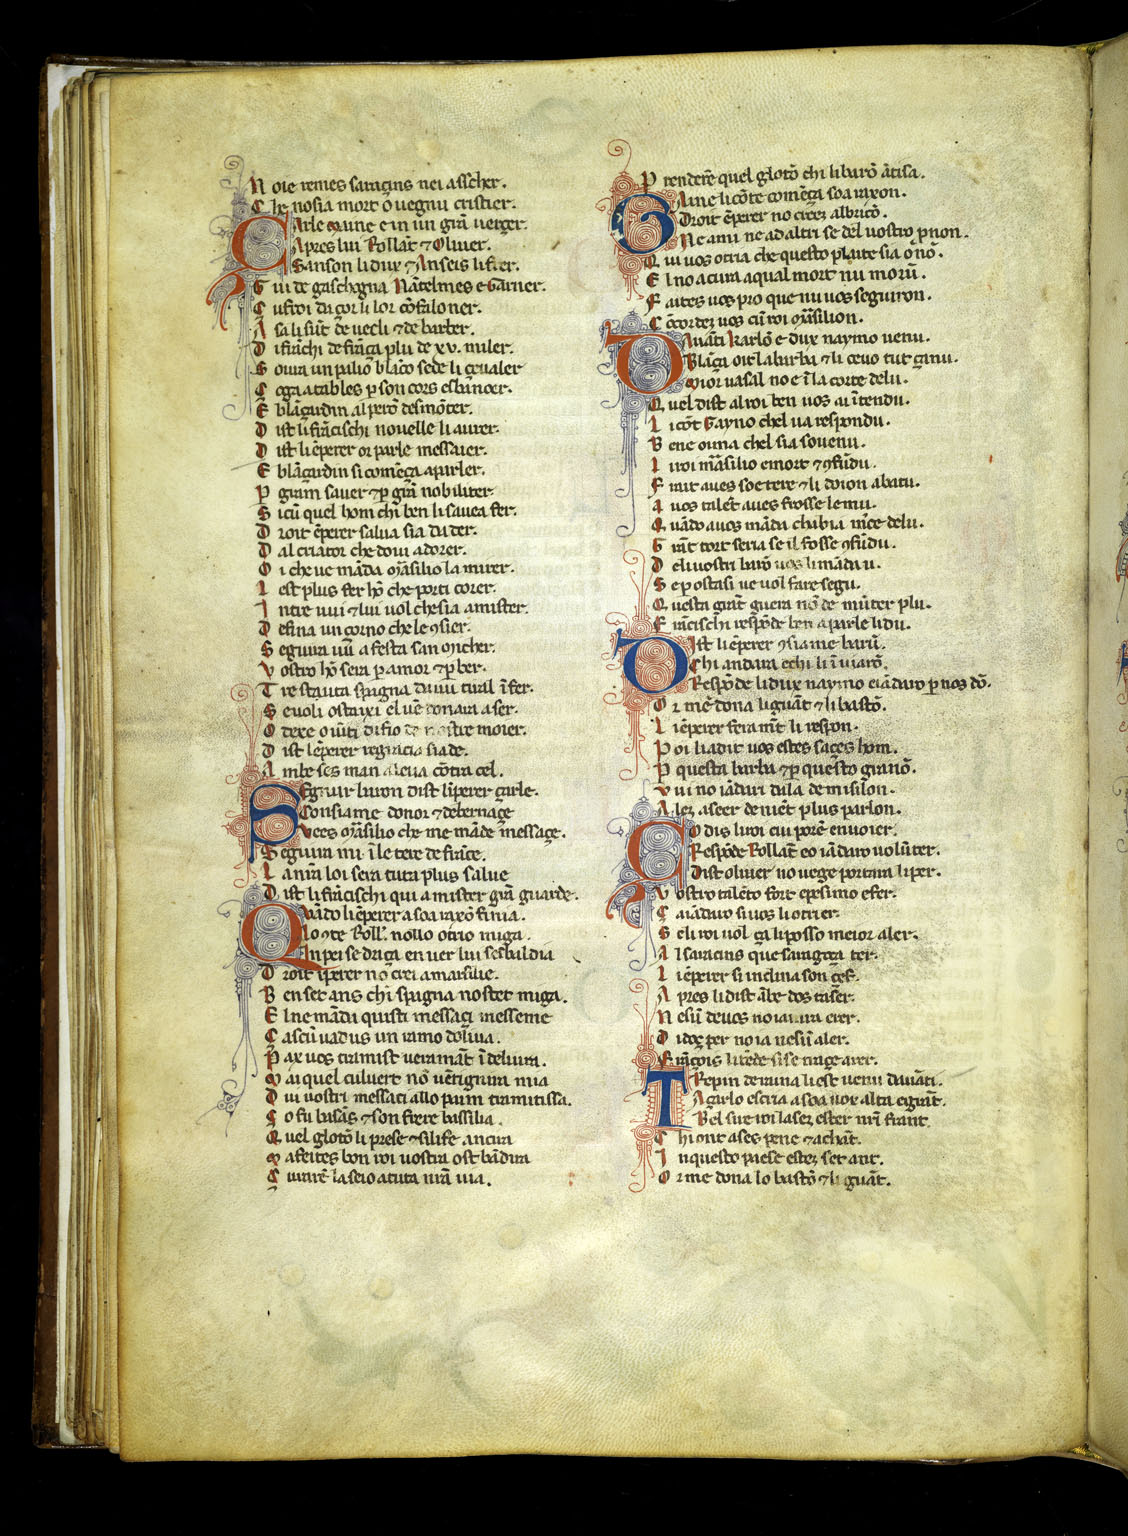 N oie remes saracins nei ascher.
C he no sia mort o vegnu cristier.
Carle mune e in un grā verger.
Apres lui Rollāt ⁊ Oliver.
Sanson li dux ⁊ Anseis li fier.
G ui de gaschogna Nātelmes e Garner.
C ufroi da cor li lor cōfaloner.
A sa li sūt de vecli ⁊ de barber.
D i frāchi de frāça plu de xv. miler.
S ovra un palio blāco sede li çevaler
C oga a tables p son cors esbāncer.
E blāçardin al pero desmōter.
D ist li frācischi novelle li aurer.
D ist li ēperer or parle messaier.
E blāçardin si comēça a parler.
P gram saver ⁊ p grā nobiliter.
S icū quel hom chi ben li savea fer.
D roit ēperer salva sia da der.
D al criator che dovi adorer.
O i che ve māda Mārsilio la mirer.
L est plus fer hō che porti corer.
I ntre vui ⁊ lui vol che sia amister.
D efina un corno che le 9sier.
S eguira vū a festa san Micher.
V ostro hō sera p amor ⁊ p ber.
T re stauta spagna da vu tiral īfer.
S e voli ostaixi el vē donara aser.
D ist l ēperer regracio sia de.
A mbe ses man aleva cōtra cel.
Segnur baron dist līperer çarle.
Consiame donor ⁊ de bernaçe
Veez Mārsilio che me māde messaçe.
S eguira mi ī le tere de frāce.
L a mia loi sera tuta plus salve
D ist li frācischi qui a mister grā guarde.
Quādo li ēperer a soa raxō finia.
Lo 9te Roll'. nollo otrio miga.
En pei se driça en ver lui sesbaldia
D roit īperer nō crei a marsilie.
B en set ans chi spagna no stet miga.
E l ne māda quisti messaçi messeme
C ascū vad us un ramo dōliva.
P ax vos tramist veramāt ī delivra.
M ai quel culvert nō vētignira mia
D ui vostri messaci allo paim tramitissa.
C o fu basās ⁊ son frere bassilia.
Q uel glotō li prese ⁊ silife ancira
M afeites bon roi vostra ost bādira
P rendere quel glotō chi li barō ātisa.
Gaine li cōte comēça soa raxon.
Droit ēperer no creez albricō.
Ne a mi ne ad altri se del vostro pnon.
Q ui vos otria che questo plaite sia o nō.
E l no a cura a qual mort nu morū.
F aites vos pro que nu vos seguiron.
C ōcordez vos cū roi Mārsilion.
Davāti karlō e dux naymo venu.
Blāça oit la barba ⁊ li cevo tut çanu.
Mior vasal no e ī la corte de lu.
Q uel dist al roi ben vos ai ītendu.
L i cōt Gayno chel va respondu.
B ene oima chel sia sovenu.
L i roi mārsilio e mort ⁊ 9fūdu.
F rait aves soe tere ⁊ li doion abatu.
A vos talēt aves frosse le mu.
Q uādo a vos māda chabia mce de lu.
G rāt tort seria se il fosse 9fūdu.
D eli vostri barō vos li mādau.
S e p ostasi ve vol fare segu.
Q uesta grāt guera nō de mūter plu.
F rācischi respōde ben a parle li du.
Dist li ēperer 9siame barū.
Chi andara echi li īviarō.
Respōde li dux naymo ei ādaro p nos dō.
O r me dona li guāt ⁊ li bastō.
L i ēperer fera mēt li respon.
P oi li adit vos estes saçes hom.
P questa barba ⁊ p questo granō.
V ui no iādari da la de misilon.
A lez a seer de niēt plus parlon.
Co dis li roi cui porē envoier.
Respōde Rollāt eo iādaro volūter.
Dist oliver no vege portara li per.
V ostro talēto fort e pesimo e fer.
C aiādaro si vos li otrier.
S e li roi vol ça li posso meior aler.
A l saracins que saragoza ter.
L i ēperer si inclina son çef.
A pres li dist ābe dos taser.
N esū de vos no ia...ra erer.
D i doxe per no ia nesū aler.
Trepin de raina li est venu davāti.
A çarlo escria a soa vox alta e grāt.
Bel sire roi lasez ester nri frant.
C hi ont ases pene ⁊ achāt.
I n questo paese estez set ant.
O r me dona lo bastō ⁊ li guāt.